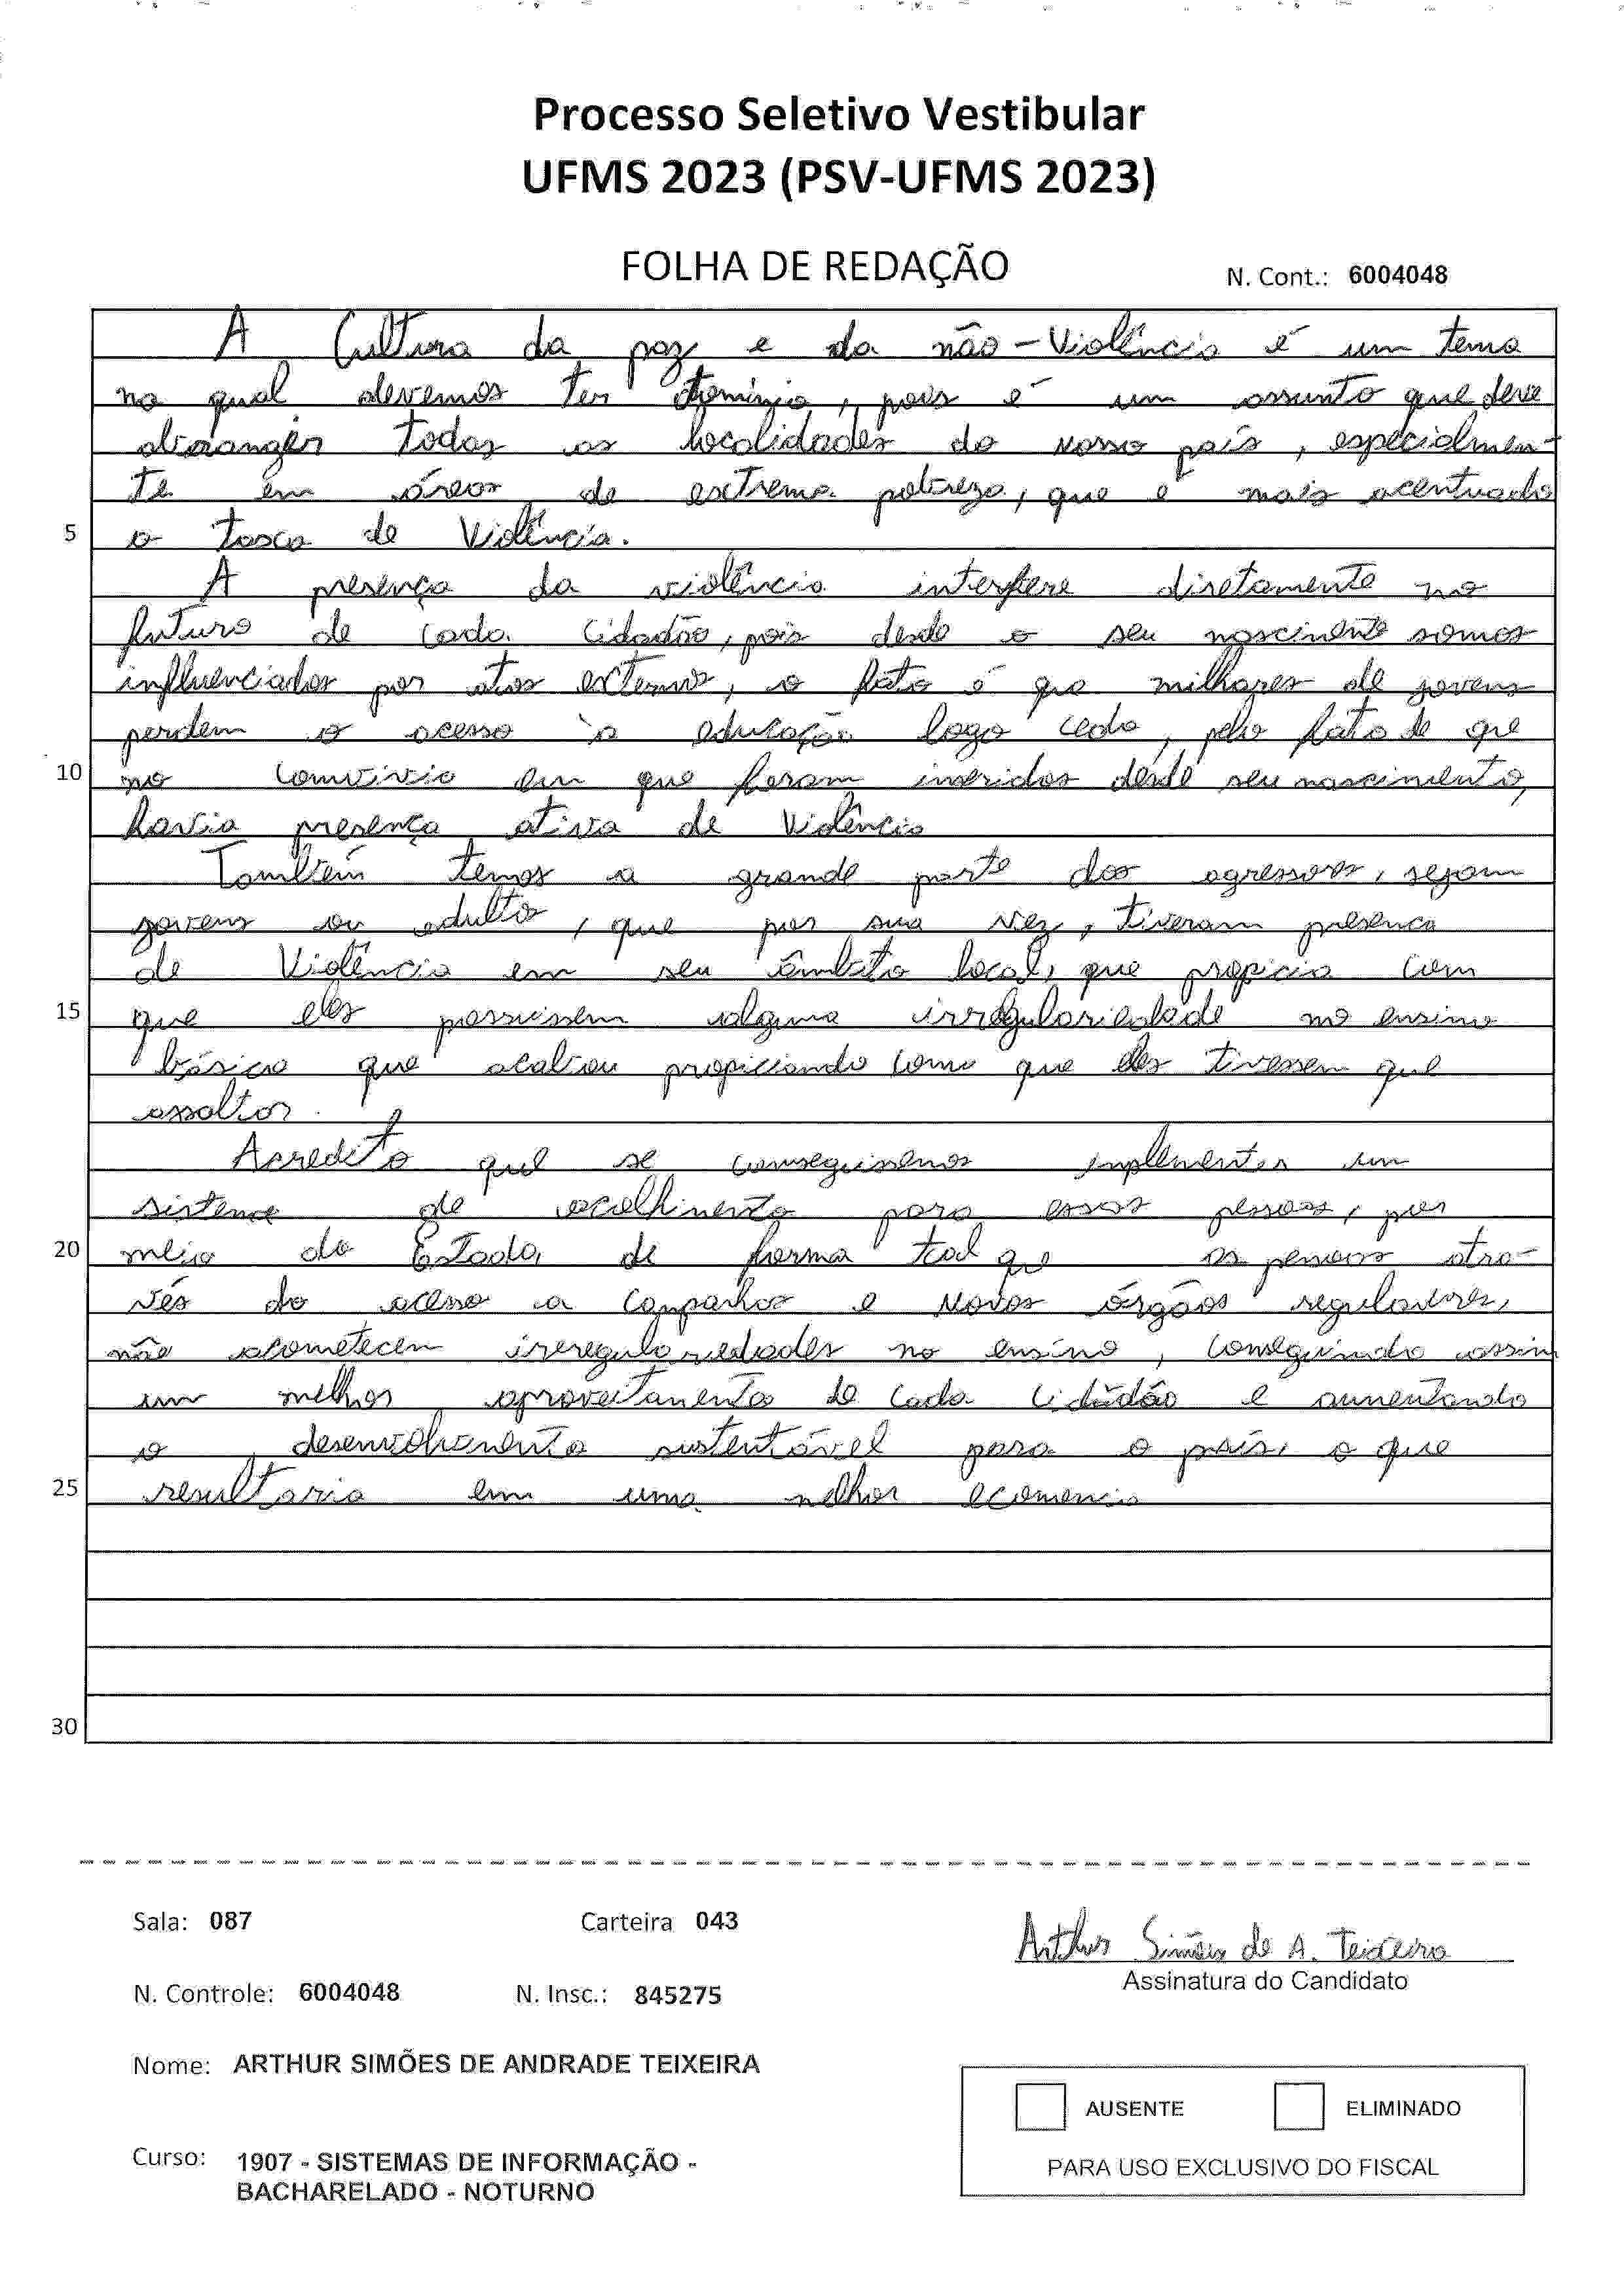 Processo Seletivo Vestibular
UFMS 2023 (PSV-UFMS 2023)
FOLHA DE REDAÇÃO
N. Cont.: 6004048
A Cultura da paz e da não-Violência é um tema
no qual devemos ter domínio, pois é um assunto que deve
abranger todas as localidades do nosso país, especialmen-
te em áreas de extrema pobreza, que é mais acentuado
5 a taxa de Violência.
A presença da violência interfere diretamente no
futuro de cada cidadão, pois desde o seu nascimento somos
influenciados por atos externos, o fato é que milhares de jovens
perdem o acesso à educação logo cedo, pelo fato de que
10 no convívio em que foram inseridos desde seu nascimento,
havia presença ativa de Violência
Também temos a grande parte dos agressores, sejam
jovens ou adulto, que por sua vez, tiveram presença
de Violência em seu âmbito local, que propicia com
15 que eles possuissem alguma irregulariedade no ensino
básico que acabou propiciando como que eles tivessem que
assaltar.
Acredito que se conseguissemos implementar um
sistema de acolhimento para essas pessoas, por
20 meio do Estado, de forma tal que as pessoas atra-
vés do acesso a campanhas e Novos órgãos reguladores,
não acometecem irregulariedades no ensino, conseguindo assim
um melhor aproveitamento de cada cidadão e aumentando
o desenvolvimento sustentável para o país, o que
25 resultaria em uma melhor economia
30
Sala: 087
Carteira 043
Arthur Simões de A. Teixeira
Assinatura do Candidato
N. Controle: 6004048
N. Insc.: 845275
Nome: ARTHUR SIMÕES DE ANDRADE TEIXEIRA
AUSENTE
ELIMINADO
PARA USO EXCLUSIVO DO FISCAL
Curso: 1907 - SISTEMAS DE INFORMAÇÃO -
BACHARELADO - NOTURNO